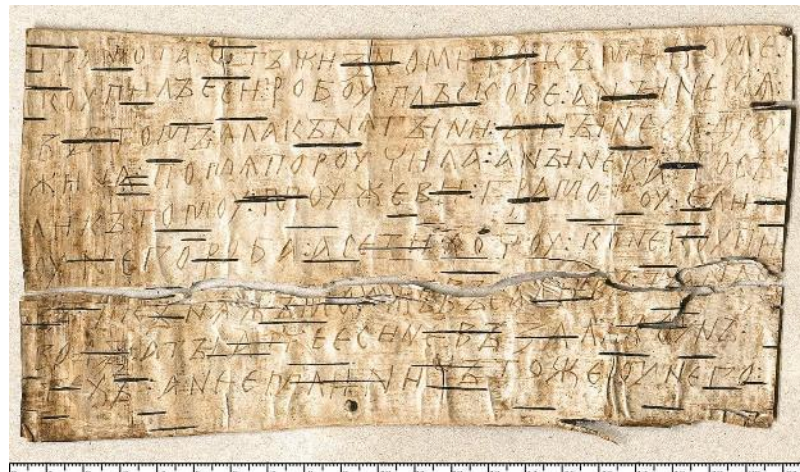 ГРАМОТА : ѠТЪ ЖИЗНОМИРА : КЪ МИКОУЛЕ :
КОУПИЛЪ ЕСИ : РОБОУ : ПЛЪСКОВЕ : А НЫНЕ МѦ :
ВЪ ТОМЪ : ѦЛА КЪНѦГЫНИ : А НЫНЕ СѦ ДРОУ
ЖИНА : ПО МѦ ПОРОУЧИЛА : А НЫНЕ КА : ПОСЪ
ЛИ КЪ ТОМОУ : МОУЖЕВИ : ГРАМОТОУ : Е ЛИ
ОУ НЕГО РОБА : А СЕ ТИ ХОЧОУ : КОНЕ КОУПИ
ВЪ : И КЪНѦЖЪ МОУЖЪ ВЪСАДИВЪ : ТА НА СЪ
ВОДЫ : А ТЫ АТЧЕ ЕСИ НЕ ВЪЗАЛЪ КОУНЪ :
ТЕХЪ : А НЕ ЕМЛИ : НИЧЪТО ЖЕ ОУ НЕГО :